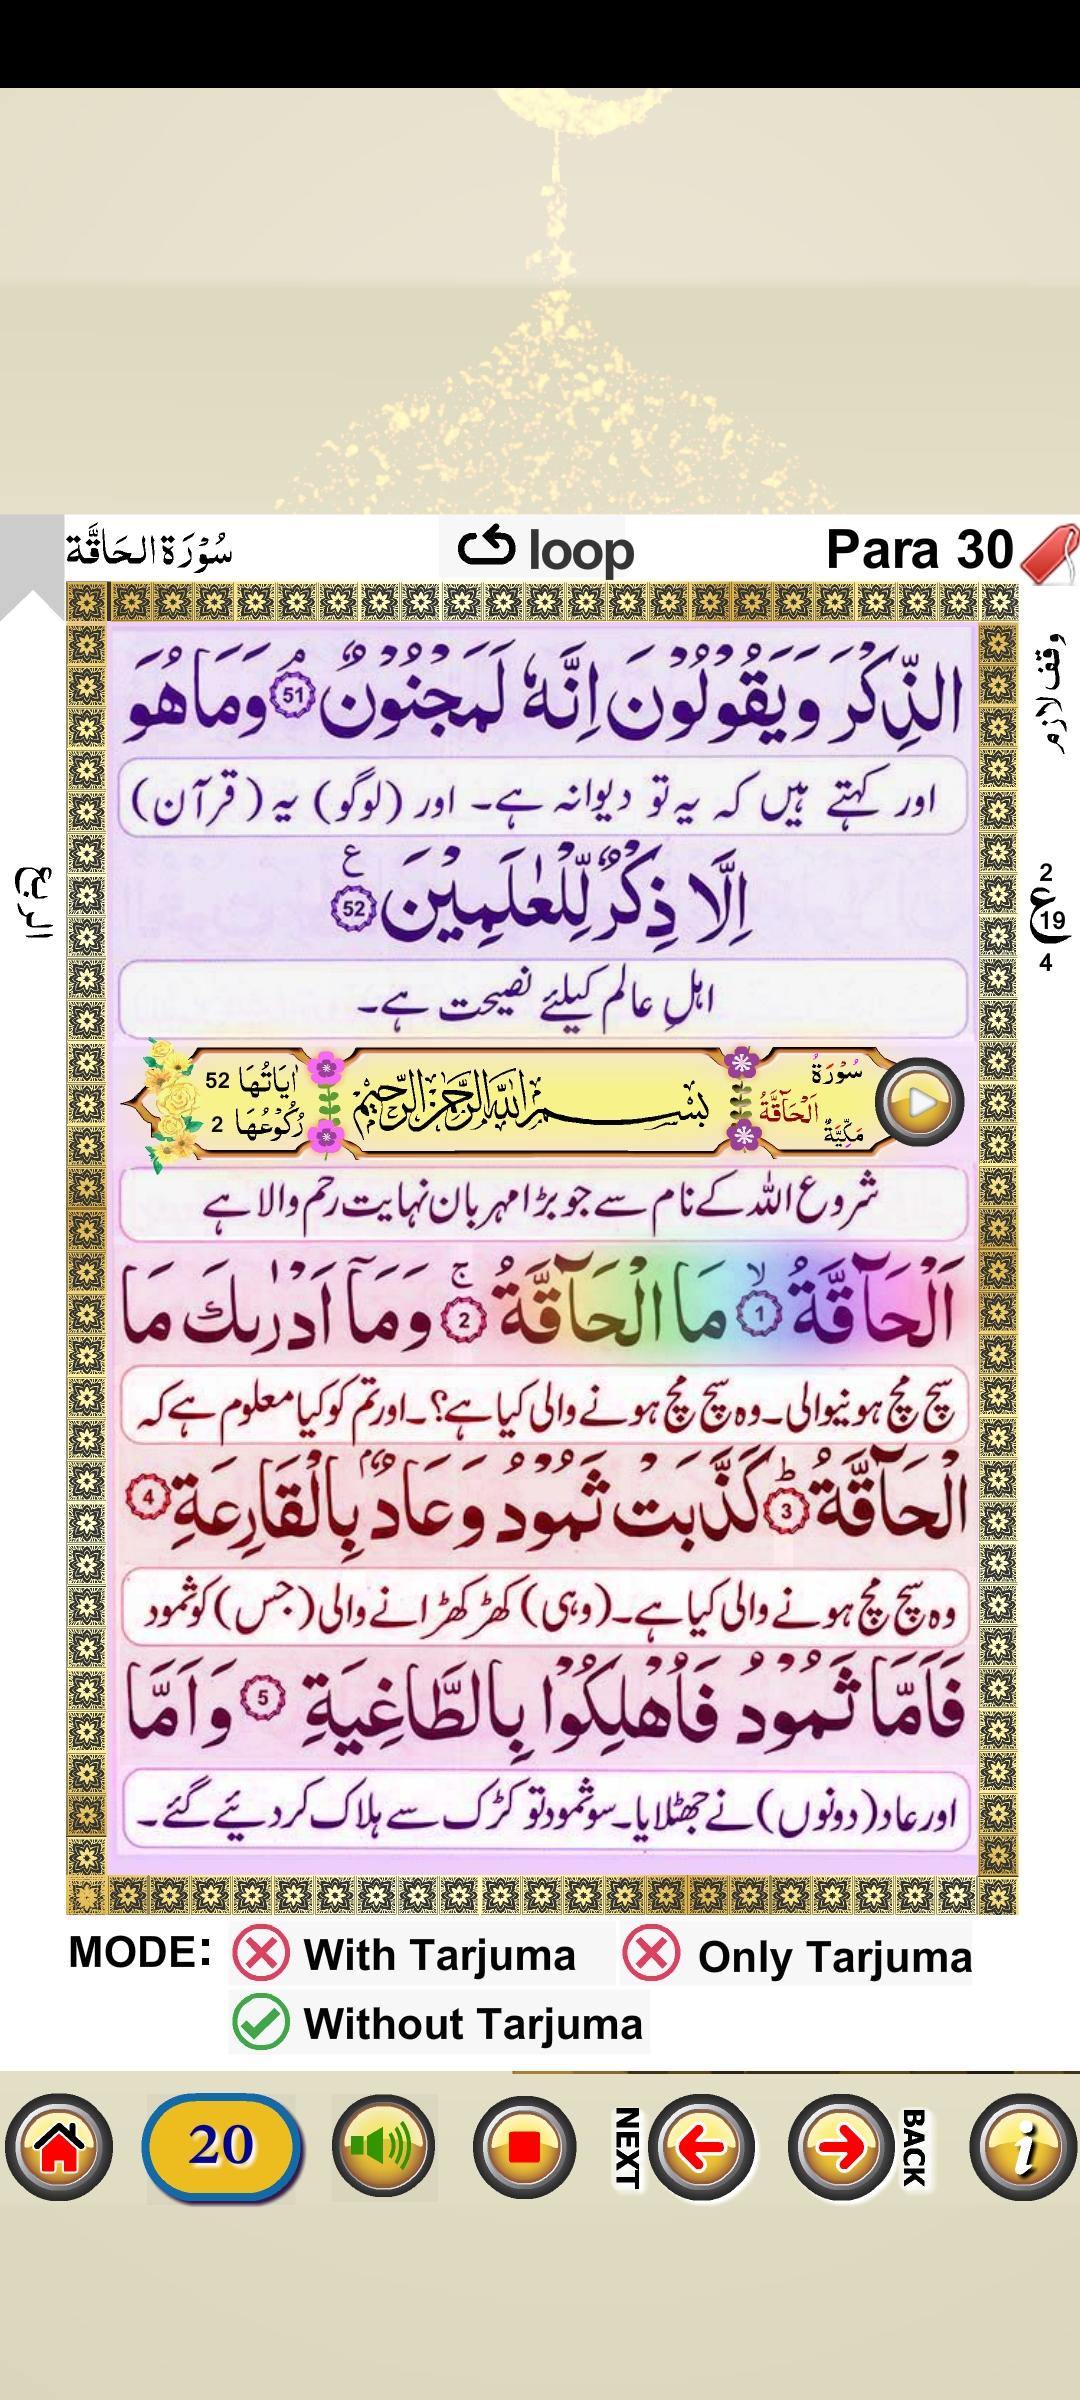 سُوْرَةُ الحَاقَّة loop Para 30
وقف لازم
الذِّكْرَ وَيَقُوْلُوْنَ اِنَّهٗ لَمَجْنُوْنٌ ۘ 51 وَمَا هُوَ
اور کہتے ہیں کہ یہ تو دیوانہ ہے۔ اور (لوگو) یہ (قرآن)
اِلَّا ذِكْرٌ لِّلْعٰلَمِيْنَ ع 52
2
ع 19
4
الربع
اہلِ عالم کیلئے نصیحت ہے۔
سُوْرَةُ الْحَاۤقَّةُ مَكِّيَّةٌ
بسم الله الرحمن الرحيم
اٰيَاتُهَا 52
رُكُوْعُهَا 2
شروع اللہ کے نام سے جو بڑا مہربان نہایت رحم والا ہے
اَلْحَآقَّةُ ۙ 1 مَا الْحَآقَّةُ ۚ 2 وَمَآ اَدْرٰىكَ مَا
سچ مچ ہونیوالی۔ وہ سچ مچ ہونے والی کیا ہے؟۔ اور تم کو کیا معلوم ہے کہ
الْحَآقَّةُ ؕ 3 كَذَّبَتْ ثَمُوْدُ وَعَادٌۢ بِالْقَارِعَةِ 4
وہ سچ مچ ہونے والی کیا ہے۔ (وہی) کھڑ کھڑانے والی (جس) کو ثمود
فَاَمَّا ثَمُوْدُ فَاُهْلِكُوْا بِالطَّاغِيَةِ 5 وَاَمَّا
اور عاد (دونوں) نے جھٹلایا۔ سو ثمود تو کڑک سے ہلاک کر دیئے گئے۔
MODE: With Tarjuma Only Tarjuma
Without Tarjuma
20 NEXT BACK i